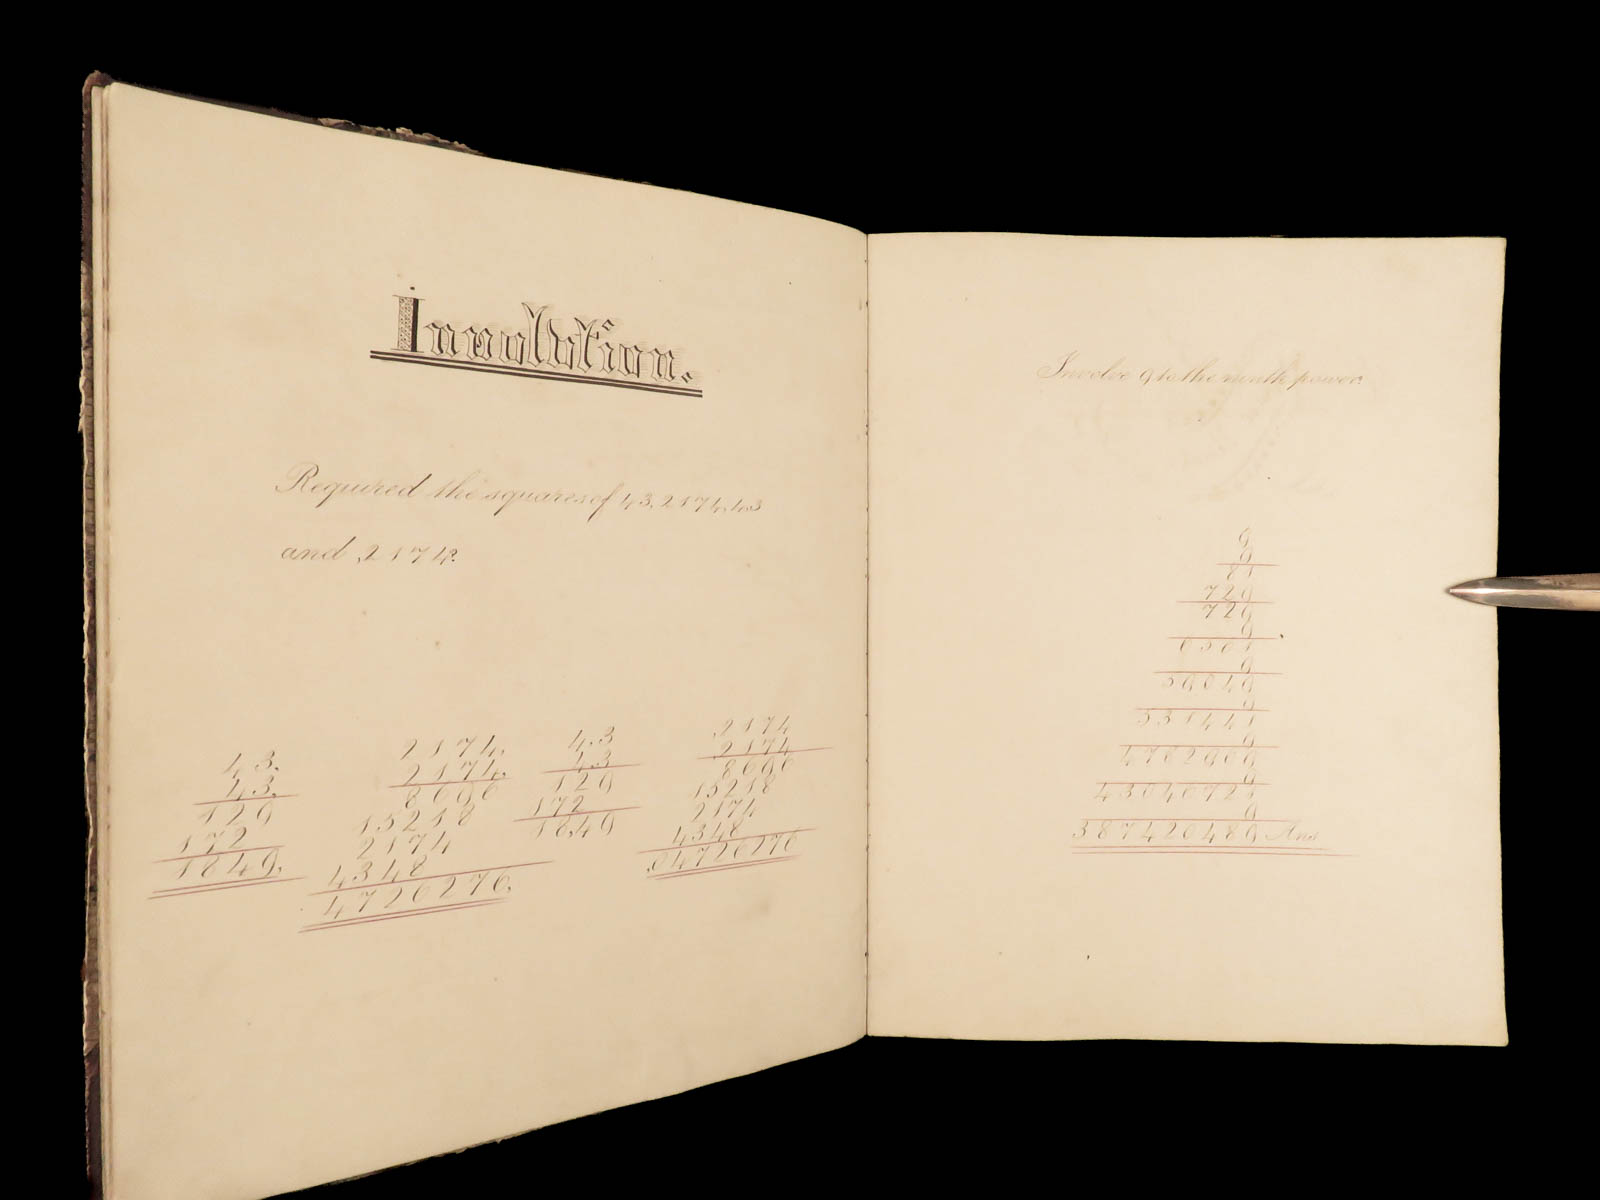 Involution.
Required the squares of 43, 2174, 4.3
and .2174?
43.
43.
129
172
1849.
2174.
2174.
8696
15218
2174
4348
4726276.
4.3
4.3
129
172
18.49
.2174
.2174
8696
15218
2174
4348
.04726276
Involve 9 to the ninth power?
9
9
81
729
729
9
6561
9
59049
9
531441
9
4782969
9
43046721
9
387420489 Ans